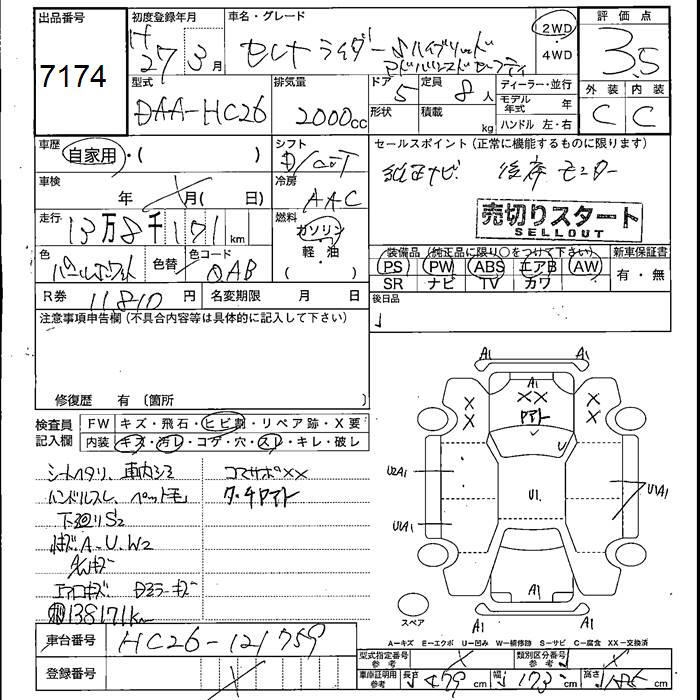 出品番号
7174
初度登録年月
H 27 3 月
車名・グレード
セレナ ライダー Sハイブリッド
アドバンスドセーフティ
2WD
・
4WD
評価点
3.5
型式
DAA-HC26
排気量
2000cc
ドア 5
定員 8人
形状
積載 kg
ディーラー・並行
モデル年式 年
ハンドル 左・右
外装 内装
C C
車歴
自家用・( )
シフト
車検
年 月( 日)
冷房
AAC
走行
13万8千171km
燃料
ガソリン
・
軽・油
( )
色
パールホワイト
色替
色コード
QAB
R券 11,810 円
名変期限 月 日
セールスポイント (正常に機能するものに限ります)
純正ナビ 後席モニター
売切りスタート
SELLOUT
装備品 (純正品に限り○をつけて下さい)
PS PW ABS エアB AW
SR ナビ TV カワ
新車保証書
有・無
後日品
注意事項申告欄(不具合内容等は具体的に記入して下さい)
修復歴 有 〔箇所 〕
検査員記入欄
FW キズ・飛石・ヒビ割・リペア跡・X要
内装 キズ・汚レ・コゲ・穴・スレ・キレ・破レ
シートヘタリ、車内シミ
ハンドルスレ、ペット毛
下廻りS2
A.U.W2
エアロキズ Dミラーキズ
138171km
コアサポXX
A1 A1
A1
XX
X X
X X
U2A1
U1
U1A1
U1A1
A1
A1 A1
スペア
A=キズ E=エクボ U=凹み W=補修跡 S=サビ C=腐食 XX=交換済
車台番号 HC26-121759
登録番号
型式指定番号 参考
類別区分番号 参考
車庫証明用 参考 長さ 479cm 幅 173cm 高さ 185cm